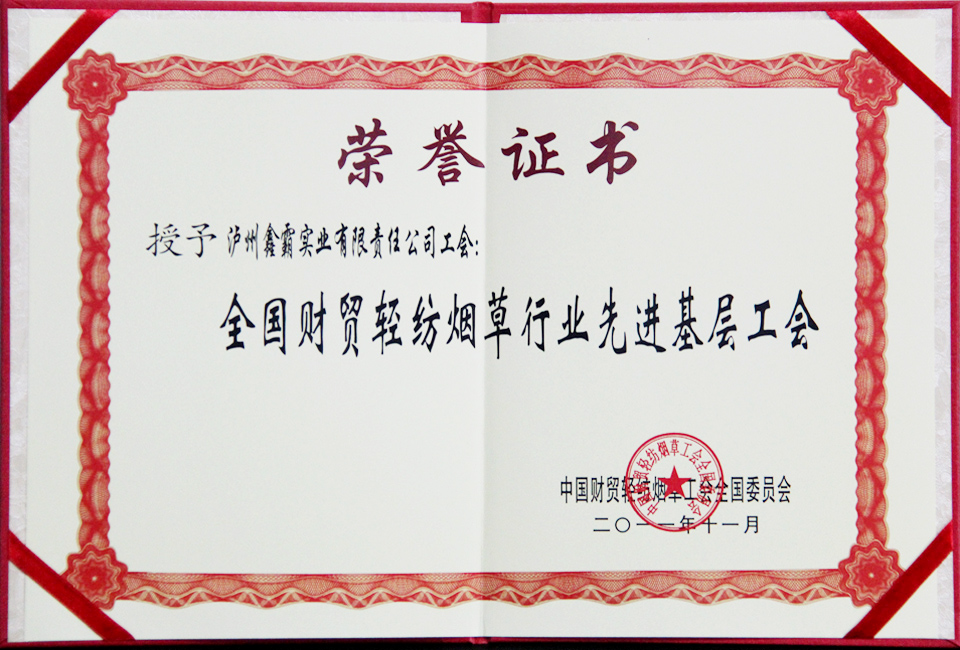 荣誉证书
授予 泸州鑫霸实业有限责任公司工会：
全国财贸轻纺烟草行业先进基层工会
中国财贸轻纺烟草工会全国委员会
二〇一一年十一月
中国财贸轻纺烟草工会全国委员会